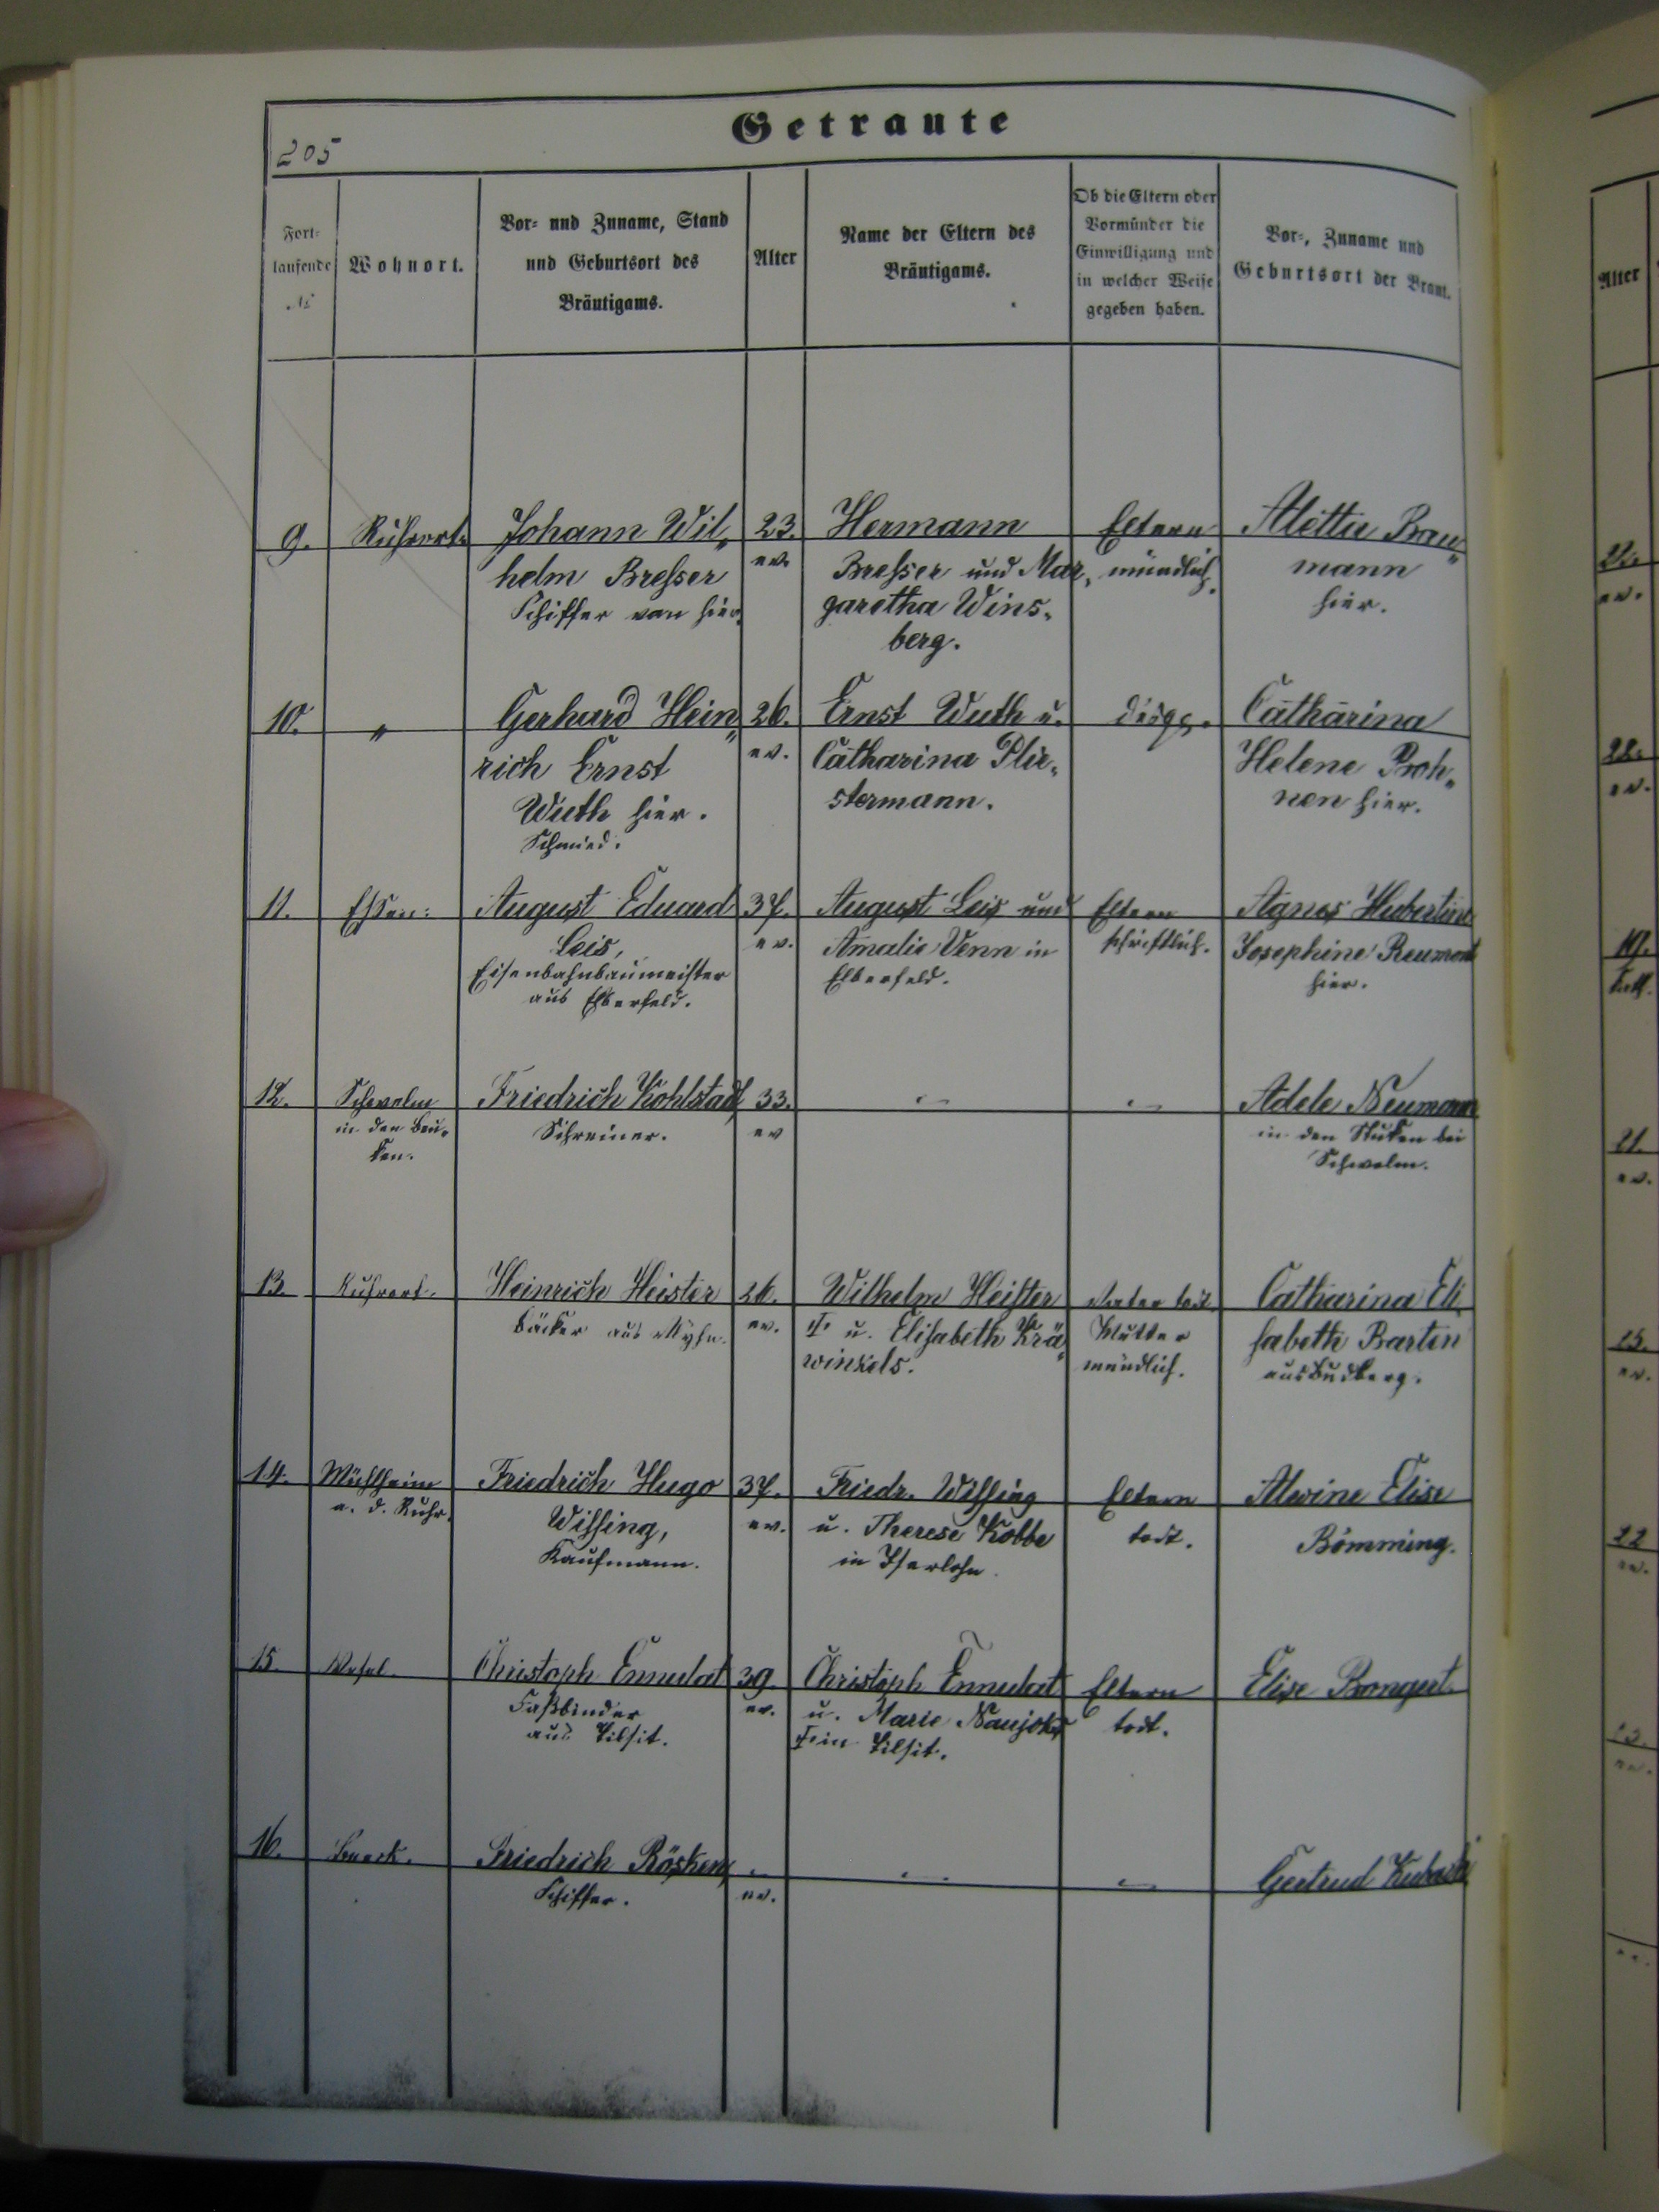 Getraute
205
Fort-
laufende
№
Wohnort.
Vor- und Zuname, Stand
und Geburtsort des
Bräutigams.
Alter
Name der Eltern des
Bräutigams.
Ob die Eltern oder
Vormünder die
Einwilligung und
in welcher Weise
gegeben haben.
Vor-, Zuname und
Geburtsort der Braut.
Alter
9.
Ruhrort.
Johann Wil„
helm Bresser
Schiffer von hier.
23.
ev.
Hermann
Bresser und Mar„
garetha Wins„
berg.
Eltern
mündlich.
Aletta Bau„
mann
hier.
22.
ev.
10.
„
Gerhard Hein„
rich Ernst
Wuth hier.
Schmied.
26.
ev.
Ernst Wuth u.
Catharina
stermann.
Catharina
Helene
nen hier.
22.
ev.
11.
Essen.
August Eduard
Leis,
Eisenbahnbaumeister
aus Elberfeld.
37.
ev.
August Leis und
Amalie Venn in
Elberfeld.
Eltern
schriftlich.
Agnes Hubertine
Josephine Reumont
hier.
19.
kath.
12.
Schwelm
in den
ken.
Friedrich Kohlstadt
Schreiner.
33.
ev
Adele Neumann
in den bei
Schwelm.
21.
ev.
13.
Ruhrort.
Heinrich Heister
Bäcker aus
26.
ev.
Wilhelm Heister
† u. Elisabeth Krä„
winkels.
Vater todt.
Mutter
mündlich.
Catharina Eli„
sabeth Barten
aus Budberg.
25.
ev.
14.
Mühlheim
a. d. Ruhr.
Friedrich Hugo
Wissing,
Kaufmann.
37.
ev.
Friedr. Wissing
u. Therese Kobbe
in Iserlohn.
Eltern
todt.
Alwine Elise
Bömming.
22
ev.
15.
Wesel.
Christoph Ennulat
Faßbinder
aus Tilsit.
39.
ev.
Christoph Ennulat
u. Marie Naujoks
† in Tilsit.
Eltern
todt.
Elise Bongert.
ev.
16.
Friedrich Rösken
Schiffer.
ev.
Gertrud